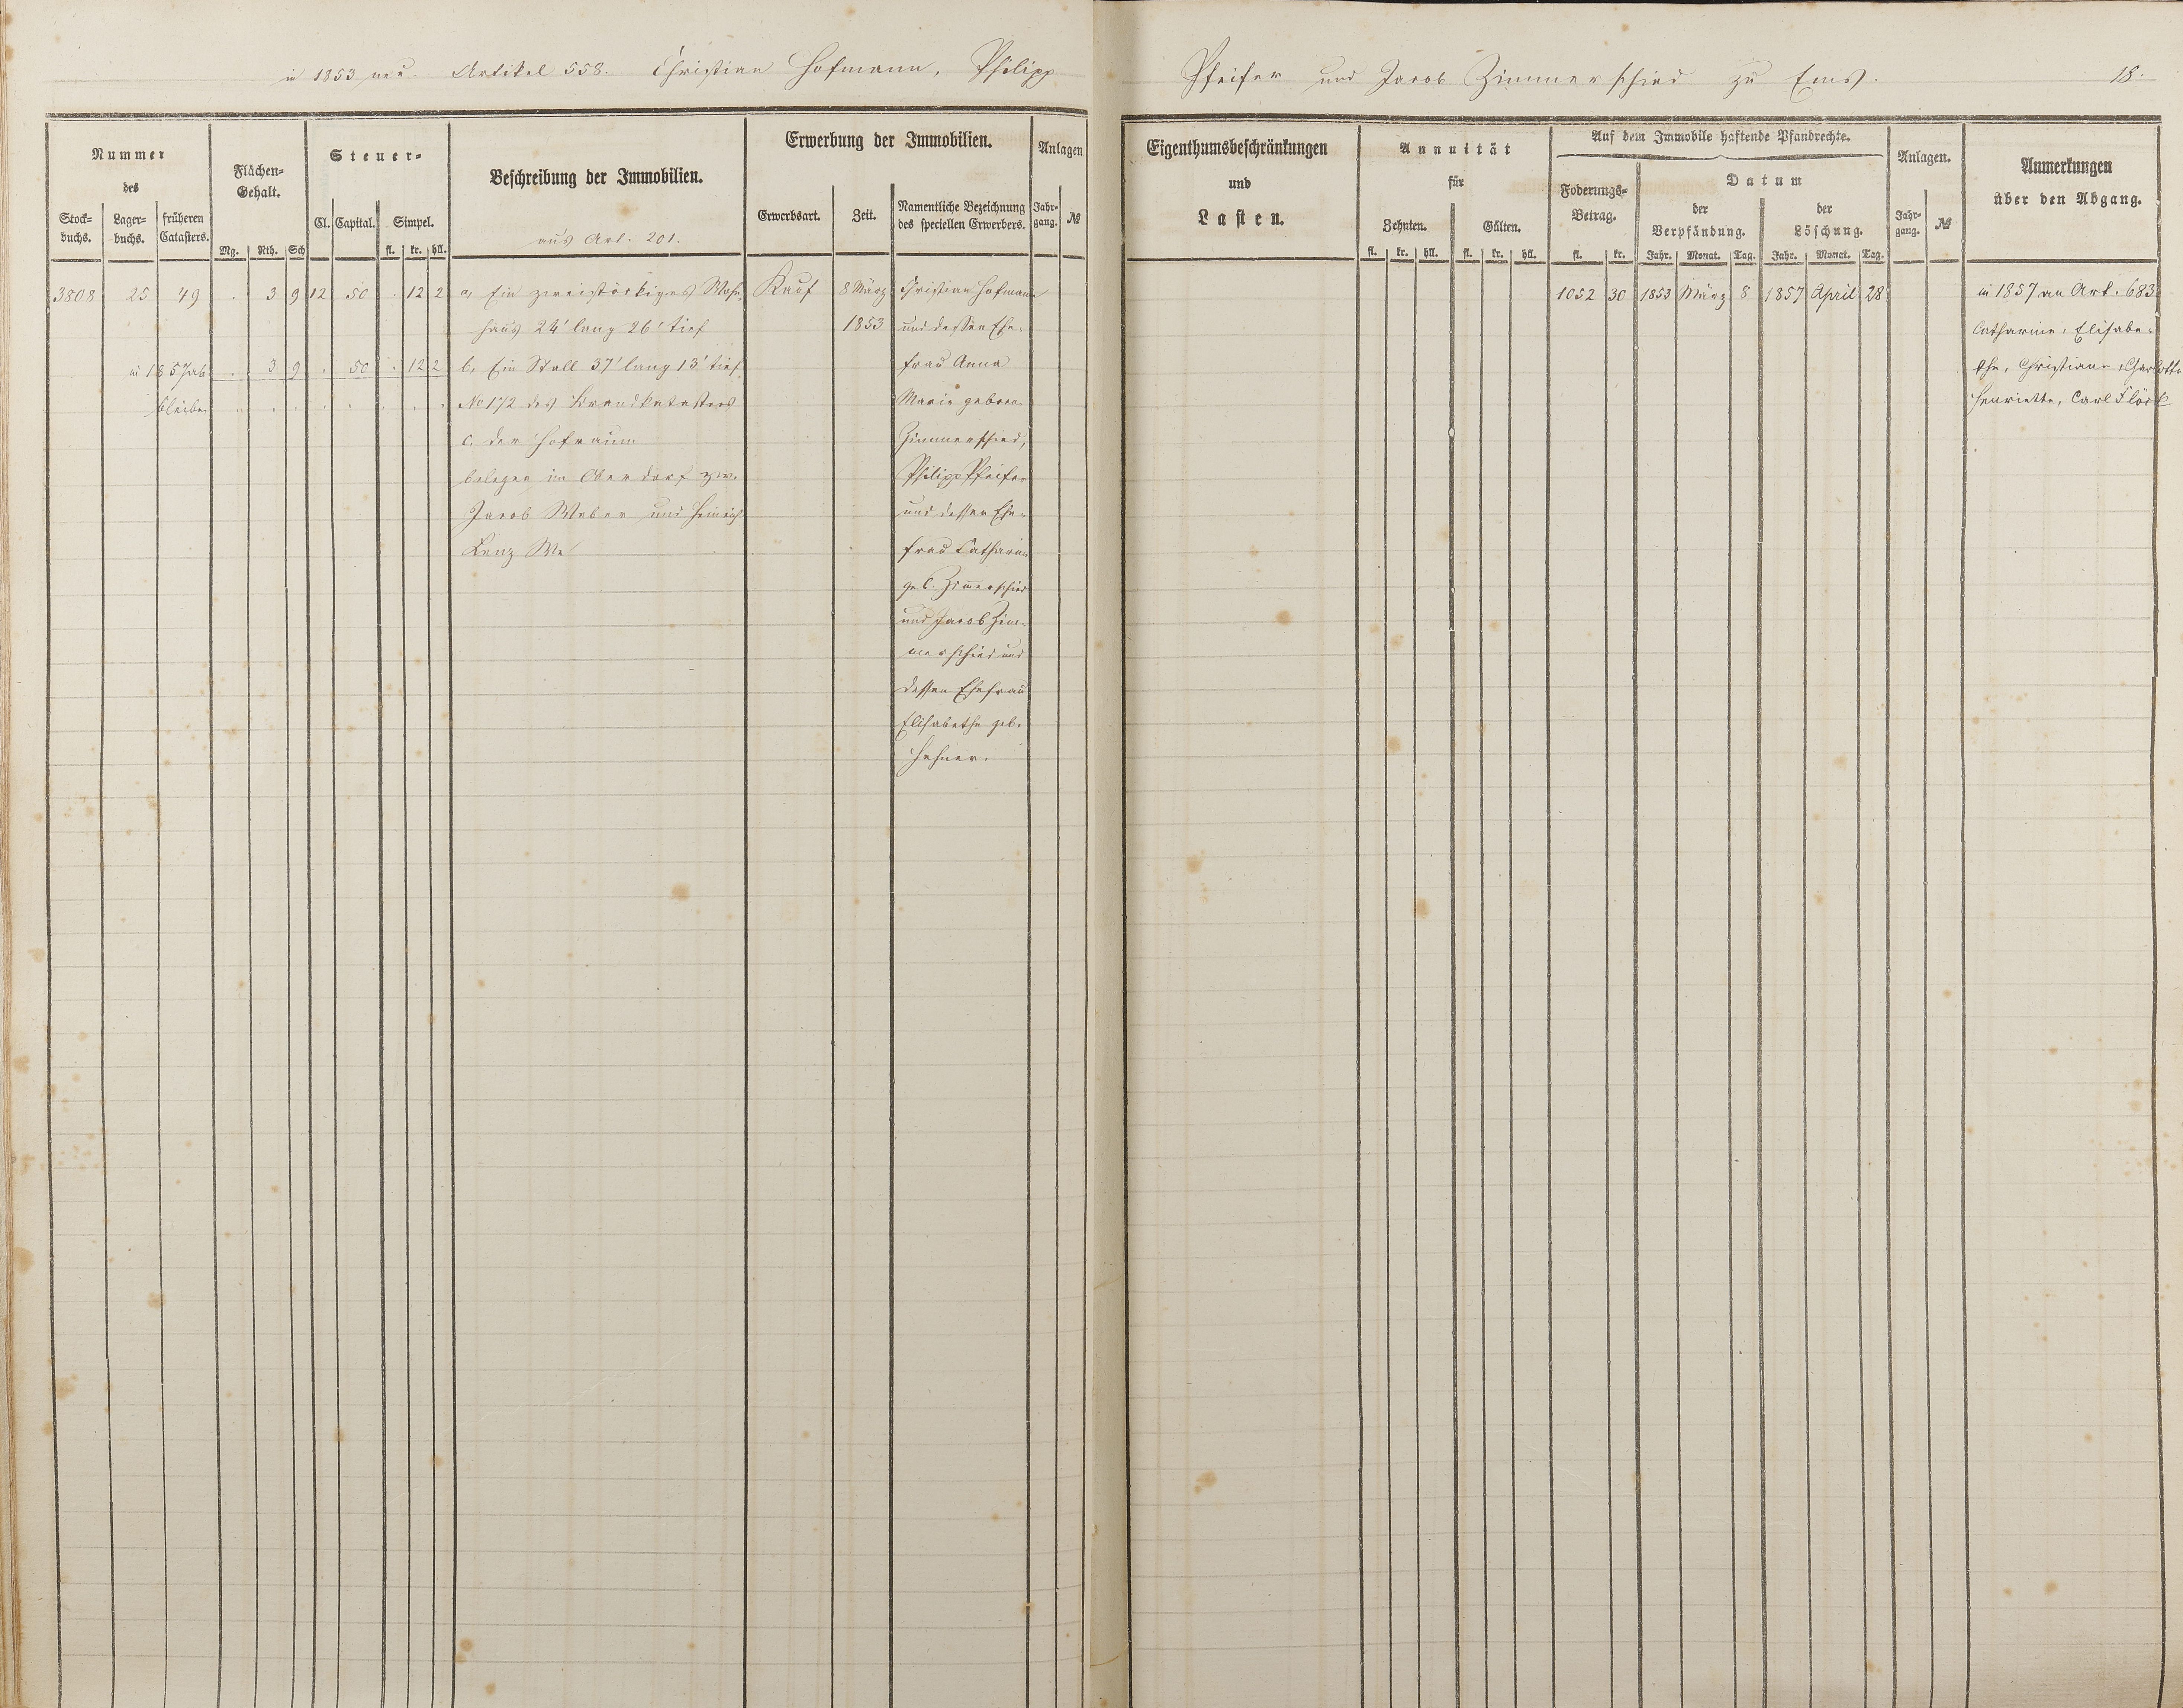 in 1853 neu. Artikel 558. Christian Hofmann, Philipp
Pfeifer und Jacob Zimmerschied zu Ems.
18.
Nummer
des
Stock-
buchs.
Lager-
buchs.
früheren
Catasters.
Flächen-
Gehalt.
Mg. Rth. Sch
Steuer-
Cl. Capital. Simpel.
fl. kr. hll.
Beschreibung der Immobilien.
aus Art. 201.
Erwerbung der Immobilien.
Erwerbsart. Zeit.
Namentliche Bezeichnung
des speciellen Erwerbers.
Anlagen
Jahr-
gang. №
3808 25 49 . 3 9 12 50 . 12 2
in 1857 ab . 3 9 . 50 . 12 2
bleibe . . . . . . . .
a, Ein zweistöckiges Wohn-
haus 24' lang 26' tief
b, Ein Stall 37' lang 13' tief
No 172 des Brandkatasters
c. der Hofraum
belegen im Oberdorf zw.
Jacob Weber und Heinrich
Lenz We
Kauf 8 März
1853
Christian Hofmann
und dessen Ehe-
frau Anna
Maria geborn
Zimmerschied,
Philipp Pfeifer
und dessen Ehe-
frau Catharine
geb. Zimmerschied
und Jacob Zim-
merschied und
dessen Ehefrau
Elisabethe geb.
Hehner.
Eigenthumsbeschränkungen
und
Lasten.
Annuität
für
Zehnten. Gülten.
fl. kr. hll. fl. kr. hll.
Auf dem Immobile haftende Pfandrechte.
Foderungs-
Betrag.
fl. kr.
Datum
der
Verpfändung.
Jahr. Monat. Tag.
der
Löschung.
Jahr. Monat. Tag.
Anlagen.
Jahr-
gang. №
Anmerkungen
über den Abgang.
1052 30 1853 März 8 1857 April 28
in 1857 an Art. 683
Catharine, Elisabe-
the, Christiane, Charlotte
Henriette, Carl Flöck